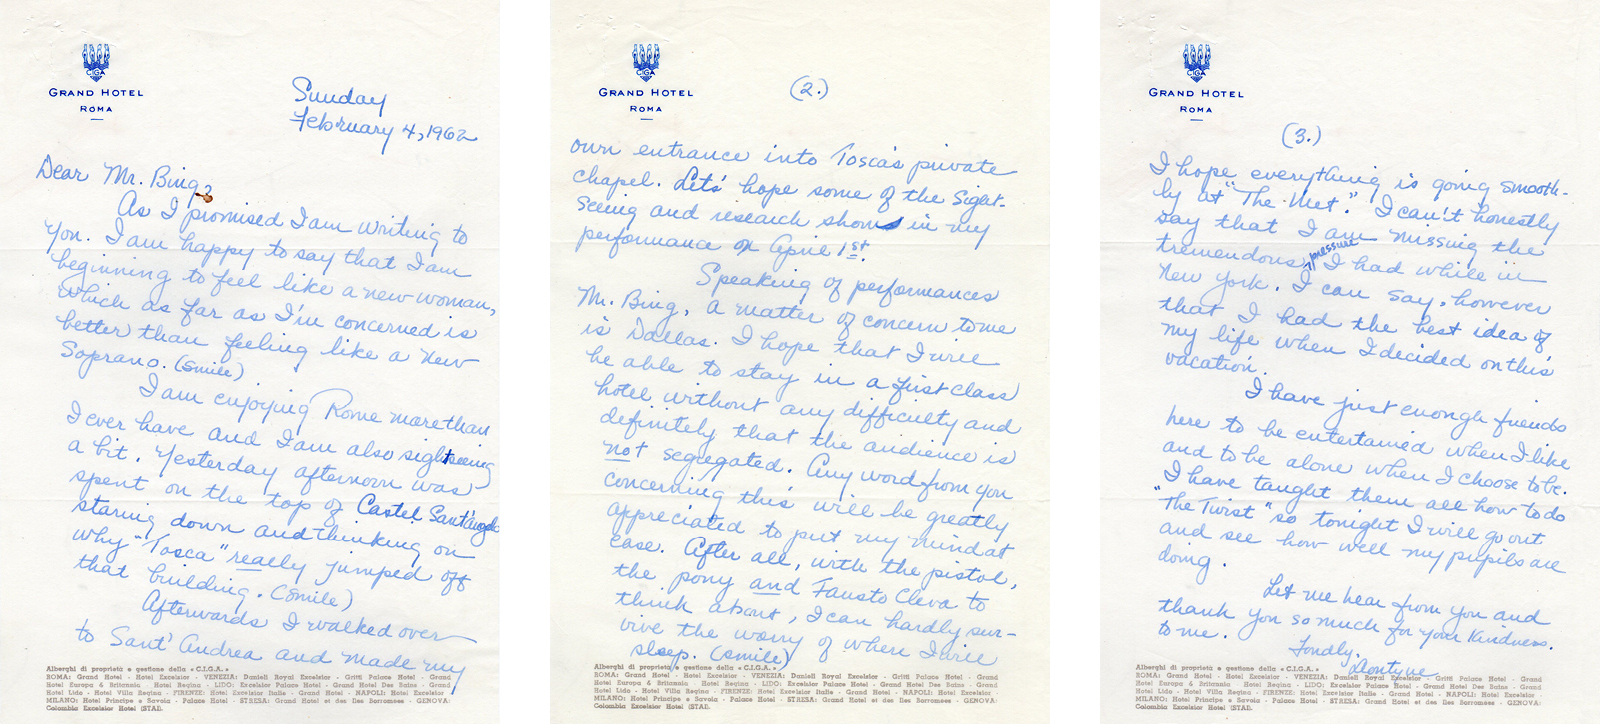 CIGA
GRAND HOTEL
ROMA
Sunday
February 4, 1962
Dear Mr. Bing,
As I promised I am writing to
you. I am happy to say that I am
beginning to feel like a new woman,
which as far as I'm concerned is
better than feeling like a new
Soprano. (smile)
I am enjoying Rome more than
I ever have and I am also sightseeing
a bit. Yesterday afternoon was
spent on the top of Castel Sant'angelo
staring down and thinking on
why "Tosca" really jumped off
that building. (smile)
Afterwards I walked over
to Sant' Andrea and made my
Alberghi di proprietà e gestione della « C.I.G.A. »
ROMA: Grand Hotel - Hotel Excelsior - VENEZIA: Danieli Royal Excelsior - Gritti Palace Hotel - Grand
Hotel Europa & Britannia - Hotel Regina - LIDO: Excelsior Palace Hotel - Grand Hotel Des Bains - Grand
Hotel Lido - Hotel Villa Regina - FIRENZE: Hotel Excelsior Italie - Grand Hotel - NAPOLI: Hotel Excelsior
MILANO: Hotel Principe e Savoia - Palace Hotel - STRESA: Grand Hotel et des Iles Borromées - GENOVA:
Colombia Excelsior Hotel (STAI).
CIGA
GRAND HOTEL
ROMA
(2.)
own entrance into Tosca's private
chapel. Let's hope some of the sight-
seeing and research shows in my
performance on April 1st.
Speaking of performances
Mr. Bing, a matter of concern to me
is Dallas. I hope that I will
be able to stay in a first class
hotel without any difficulty and
definitely that the audience is
not segregated. Any word from you
concerning this will be greatly
appreciated to put my mind at
ease. After all, with the pistol,
the pony and Fausto Cleva to
think about, I can hardly sur-
vive the worry of where I will
sleep. (smile)
Alberghi di proprietà e gestione della « C.I.G.A. »
ROMA: Grand Hotel - Hotel Excelsior - VENEZIA: Danieli Royal Excelsior - Gritti Palace Hotel - Grand
Hotel Europa & Britannia - Hotel Regina - LIDO: Excelsior Palace Hotel - Grand Hotel Des Bains - Grand
Hotel Lido - Hotel Villa Regina - FIRENZE: Hotel Excelsior Italie - Grand Hotel - NAPOLI: Hotel Excelsior
MILANO: Hotel Principe e Savoia - Palace Hotel - STRESA: Grand Hotel et des Iles Borromées - GENOVA:
Colombia Excelsior Hotel (STAI).
CIGA
GRAND HOTEL
ROMA
(3.)
I hope everything is going smooth-
ly at "The Met." I can't honestly
say that I am missing the
tremendous pressure I had while in
New York. I can say, however
that I had the best idea of
my life when I decided on this
vacation.
I have just enough friends
here to be entertained when I like
and to be alone when I choose to be.
I have taught them all how to do
"The Twist" so tonight I will go out
and see how well my pupils are
doing.
Let me hear from you and
thank you so much for your kindness.
to me.
Fondly,
Leontyne
Alberghi di proprietà e gestione della « C.I.G.A. »
ROMA: Grand Hotel - Hotel Excelsior - VENEZIA: Danieli Royal Excelsior - Gritti Palace Hotel - Grand
Hotel Europa & Britannia - Hotel Regina - LIDO: Excelsior Palace Hotel - Grand Hotel Des Bains - Grand
Hotel Lido - Hotel Villa Regina - FIRENZE: Hotel Excelsior Italie - Grand Hotel - NAPOLI: Hotel Excelsior
MILANO: Hotel Principe e Savoia - Palace Hotel - STRESA: Grand Hotel et des Iles Borromées - GENOVA:
Colombia Excelsior Hotel (STAI).